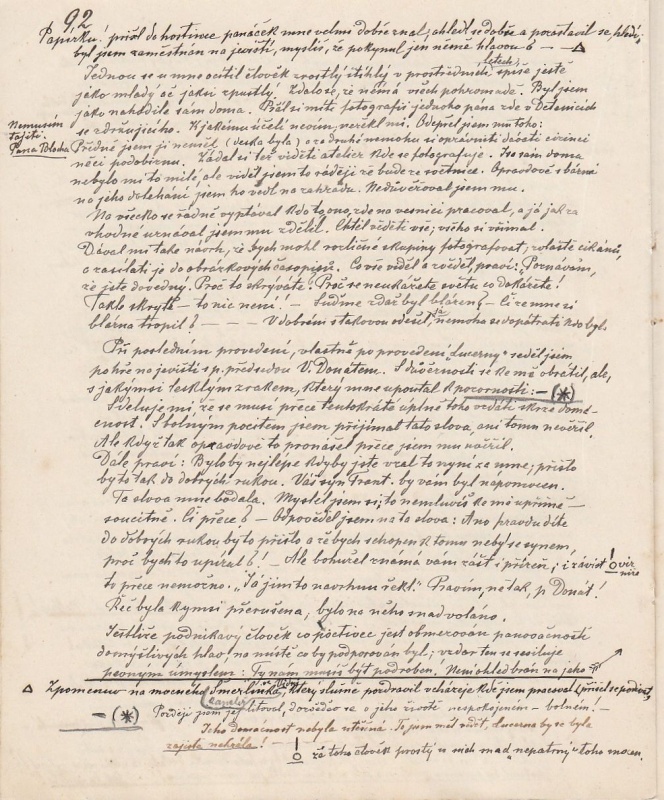 92
Papírku. přišel do hostince panáček mne velmi dobře znal; ohledl se dobře a pozastavil se, hledě;
byl jsem zaměstnán na jevišti, myslíš, že pokynul jen němě hlavou? — — △
Jednou se u mne ocitil člověk vzrostlý štíhlý v prostředních letech, spíše ještě
jako mladý ač jaksi zpustlý. Zdálo se, že nemá všech pohromadě. Byl jsem
jako náhodile sám doma. Přál si míti fotografii jednoho pána zde v Dětenicích
se zdržujícího. K jakému účeli nevím, neřekl mi. Odepřel jsem mu toho:
Nemusím
tajiti
Pana Blocha
Předně jsem ji neměl (deska byla) a za druhé nemohu si oprávniti dávati cizinci
něčí podobiznu. Žádal si též viděti atelier kde se fotografuje. Jso sám doma
nebylo mi to milé, ale viděl jsem to raději že bude ze světnice. Opravdově s bázní
na jeho doléhání jsem ho vedl na zahradu. Nedůvěřoval jsem mu.
Na všecko se řádně vyptával kdo to ono, zde na vesnici pracoval, a já jak za
vhodné uznával jsem mu zdělil. Chtěl vidět vše; všeho si všímal.
Dával mi také návrh, že bych mohl rozličné skupiny fotografovat; zvláště cikánů,
a zasílati je do obrázkových časopisů. Co vše viděl a zvěděl, praví: "Poznávám,
že jste dovedný. Proč to skrýváte? Proč se neukážete světu co dokážete!
Takto skrytě — to nic není! — Suďme zdaž byl blázen? — Či ze mne si
blázna tropil? — — — V dobrém s takovou odešel, já nemoha se dopátrati kdo byl.
Při posledním provedení, vlastně po provedení "Lucerny" seděl jsem
pohře na jevišti s p. předsedou V. Donátem. S důvěrností se ke mě obrátil, ale,
s jakýmsi lesklým zrakem, který mne upoutal k pozornosti: — (*)
Sděluje mi, že se musí přece tentokráte úplně toho vzdáti skrze domá-
cnost. S bolným pocitem jsem přijímal tato slova, ani tomu nevěřil.
Ale když tak opravdově to pronášel přece jsem mu uvěřil.
Dále praví: Bylo by nejlépe kdyby jste vzal to nyní za mne, přišlo
by to tak do dobrých rukou. Váš syn Frant. by vám byl nápomocen.
Ta slova mne bodala. Myslel jsem si, to nemluvíš ke mi upřímě —
soucitně. Či přece? — Odpověděl jsem na to slova: Ano pravdu díte
do dobrých rukou by to přišlo a že bych schopen k tomu nebyl se synem,
proč bych to upíral?! — Ale bohužel známá vám zášť i příkoří; i závist
to přece nemožno. "Já jim to navrhnu řekl." Pravím, ne tak, p. Donát!
Řeč byla kýmsi přerušena; bylo na něho snad voláno.
Jestliže podnikavý člověk co poctivec jest obmezován panovačností
domýšlivých hlav; na místě co by podporován byl; vzdor ten se sesiluje
pevným úmyslem: Ty nám musíš být podroben! Není ohled brán na jeho
△ Zpomenuv na mocného Šmerlinka, z Vídně, který slušně pozdravil vcházeje kde jsem pracoval (přišel se podívat)
— (*) Později jsem jej litoval, dozvěděv se o jeho životě nespokojeném — bolném! —
Jeho domácnost nebyla utěšná. To jsem měl vědět, Lucerna by se byla
zajisté nehrála! —
! o za toho člověk prostý u nich má "nepatrný" toho mozku.